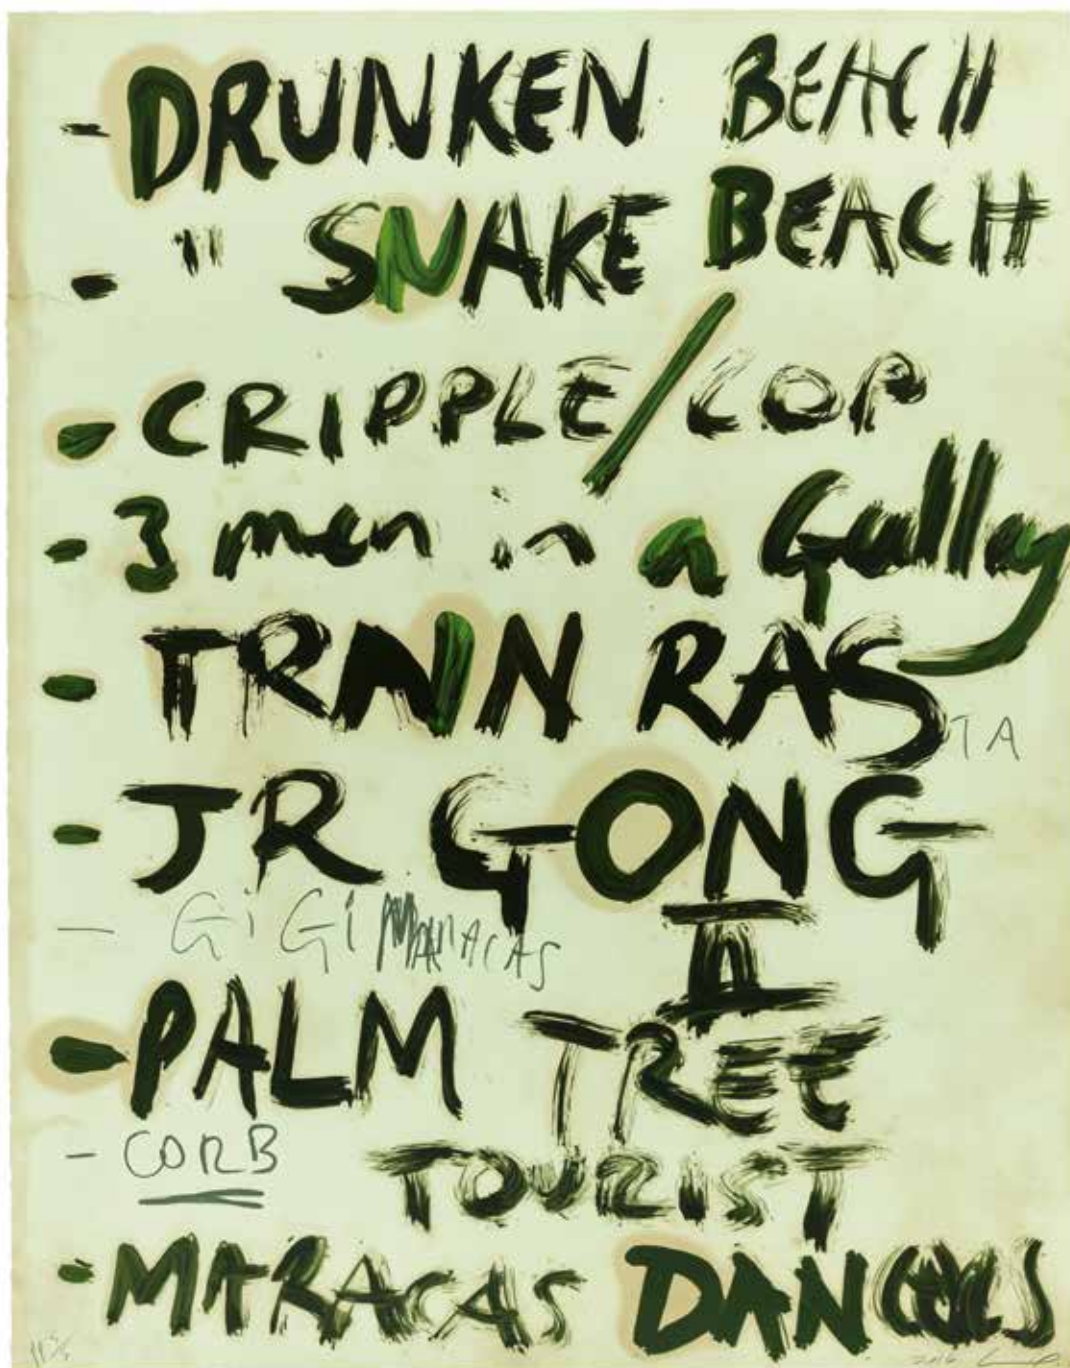 - DRUNKEN BEACH
- " SNAKE BEACH
- CRIPPLE/COP
- 3 men in a Gulley
- TRAIN RASTA
- JR GONG
II
- GiGi MARACAS
- PALM TREE
- CORB
TOURIST
- MARACAS